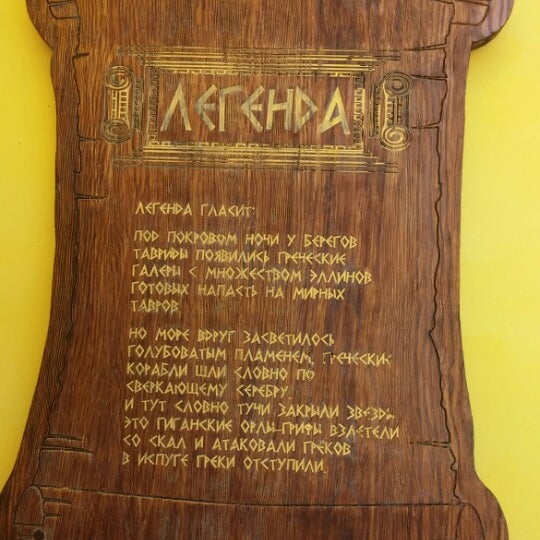 ЛЕГЕНДА
ЛЕГЕНДА ГЛАСИТ:
ПОД ПОКРОВОМ НОЧИ У БЕРЕГОВ
ТАВРИДЫ ПОЯВИЛИСЬ ГРЕЧЕСКИЕ
ГАЛЕРЫ С МНОЖЕСТВОМ ЭЛЛИНОВ
ГОТОВЫХ НАПАСТЬ НА МИРНЫХ
ТАВРОВ
НО МОРЕ ВДРУГ ЗАСВЕТИЛОСЬ
ГОЛУБОВАТЫМ ПЛАМЕНЕМ, ГРЕЧЕСКИЕ
КОРАБЛИ ШЛИ СЛОВНО ПО
СВЕРКАЮЩЕМУ СЕРЕБРУ.
И ТУТ СЛОВНО ТУЧИ ЗАКРЫЛИ ЗВЕЗДЫ
ЭТО ГИГАНСКИЕ ОРЛЫ-ГРИФЫ ВЗЛЕТЕЛИ
СО СКАЛ И АТАКОВАЛИ ГРЕКОВ
В ИСПУГЕ ГРЕКИ ОТСТУПИЛИ.